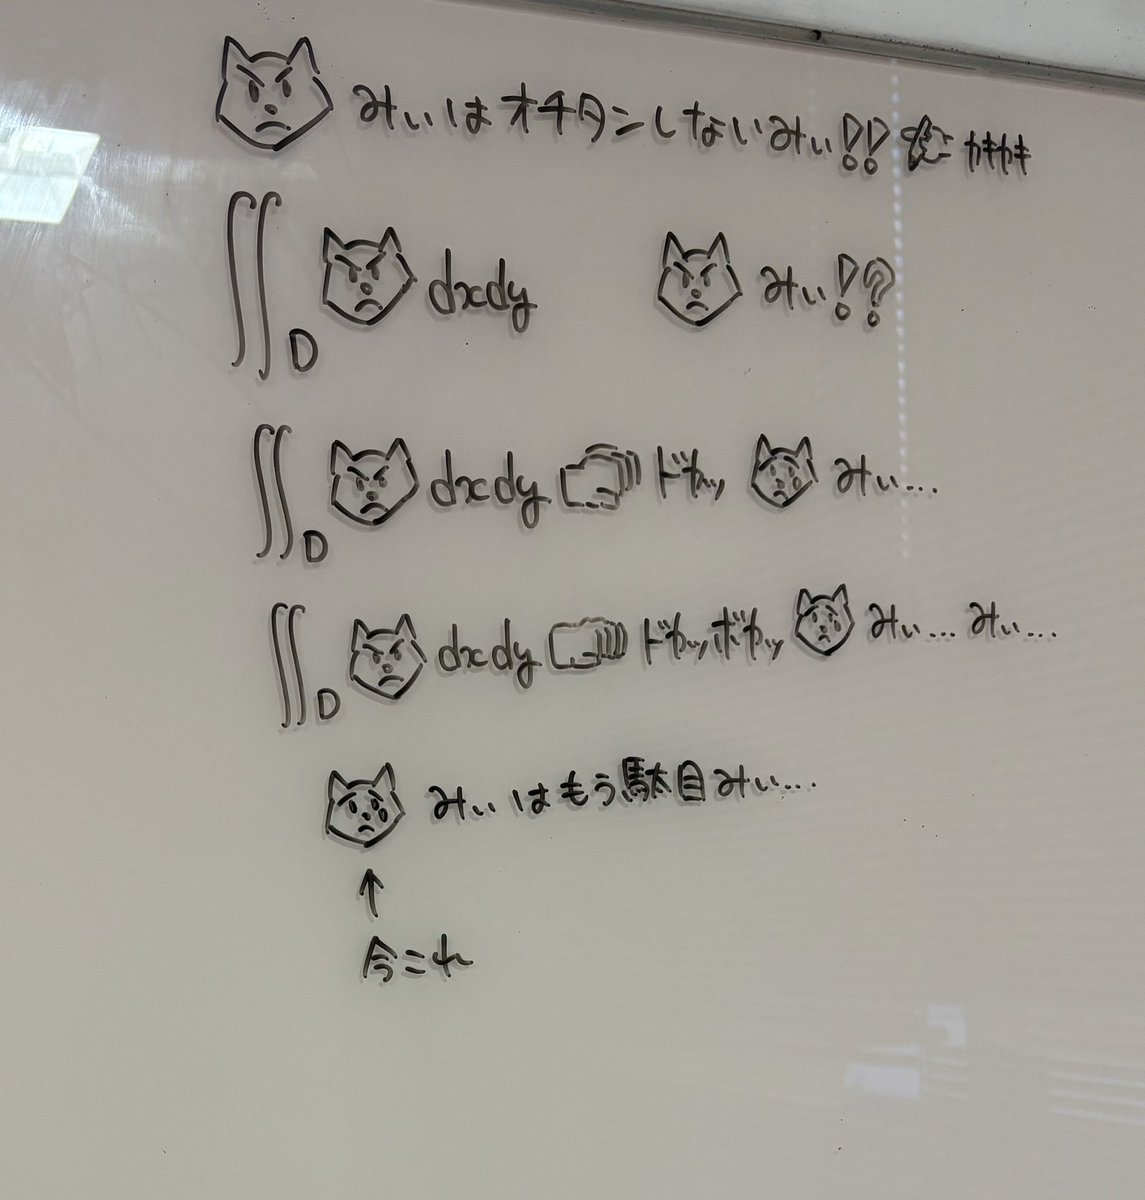 みぃはオチタンしないみぃ!! カキカキ
∬D dxdy みぃ!?
∬D dxdy ドカッ みぃ...
∬D dxdy ドカッボカッ みぃ... みぃ...
みぃはもう駄目みぃ....
↑
今これ